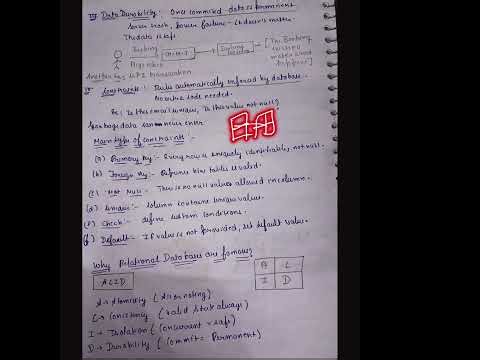 IV Data Durability : Once commited data is permanent
Server crash, power failure - it doesn't matter
The data is safe
Booking
UPI transaction
V Constraints : Rules automatically enforced by database -
No extra code needed.
Ex: Is this email unique, Is this value not null?
Garbage data can never enter
Main type of constraints :-
(a) Primary Key :- Every row is uniquely identifiable, not null.
(b) Foreign Key :- Refrence bw tables is valid.
(c) Not Null :- There is no null values allowed in column.
(d) Unique :- Column contains unique values.
(e) Check :- define custom conditions.
(f) Default :- If value is not provided, set default value.
Why Relational Database are famous?
ACID
A C
I D
A → Atomicity ( All or nothing)
C → Consistency ( valid state always)
I → Isolation ( Concurrent = safe)
D → Durability ( Commit = Permanent)